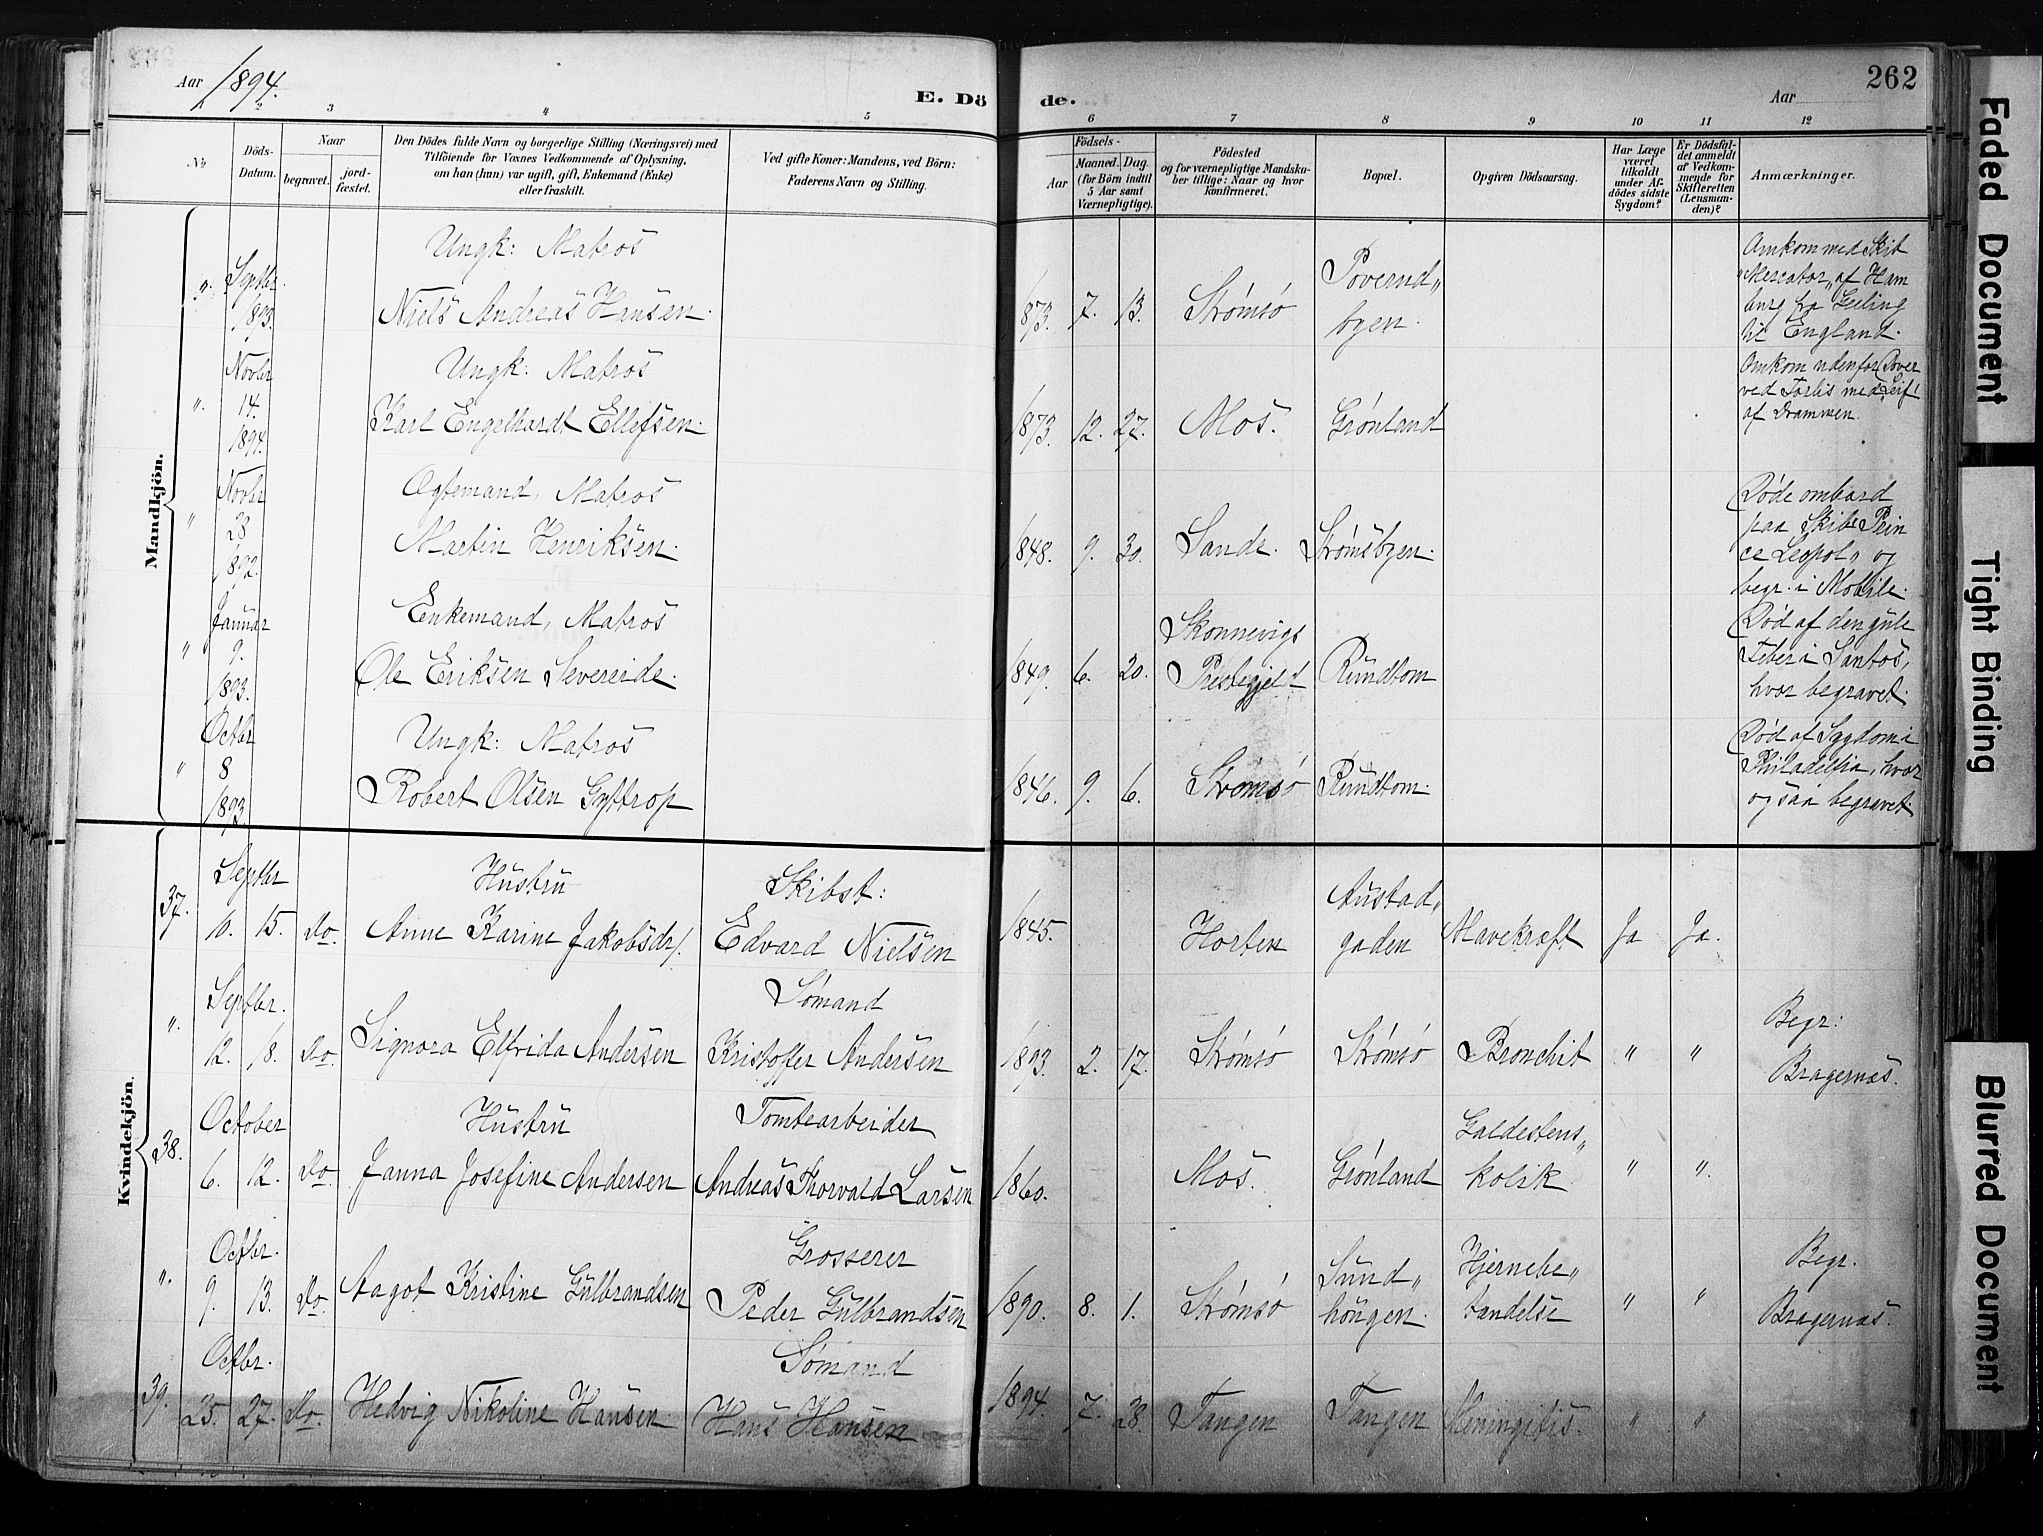 Aar 1894.
E. Dö de.
Aar
262
1 2 3 4 5 6 7 8 9 10 11 12
No
Döds-Datum.
Naar
begravet.
jord-fæstet.
Den Dödes fulde Navn og borgerlige Stilling (Næringsvei) med
Tilföiende for Voxnes Vedkommende af Oplysning,
om han (hun) var ugift, gift, Enkemand (Enke)
eller fraskilt.
Ved gifte Koner: Mandens, ved Börn:
Faderens Navn og Stilling.
Födsels-
Aar
Maaned. Dag.
(for Börn indtil
5 Aar samt
Værnepligtige).
Födested
og for værnepligtige Mandska-
ber tillige: Naar og hvor
konfirmeret.
Bopæl.
Opgiven Dödsaarsag.
Har Læge
været
tilkaldt
under Af-
dödes sidste
Sygdom?
Er Dödsfal-
det anmeldt
af Vedkom-
mende for
Skifteretten
(Lensman-
den)?
Anmærkninger.
Mandkjön.
". Septbr. 1893.
Ungk: Matros
Niels Andreas Hansen.
1873. 7. 13. Strømsø
Povernd"
byen.
Omkom med Skib
"Mercator" af Ham
burg fra Geeling
til England.
". Novbr 14. 1894.
Ungk: Matros
Karl Engelhardt Ellefsen.
1873. 12. 27. Mos. Grønland
Omkom udenfor Dover
ved Forlis med Leif
af Drammen.
" Novbr 28 1892.
Ogtemand, Matros
Martin Henriksen.
1848. 9. 30. Sande. Strømsbyen.
Døde ombord
paa Skibet Prin
ce Leopol" og
begr. i Mobile.
" Januar 9. 1893.
Enkemand, Matros
Ole Eriksen Severeide.
1849. 6. 20.
Skonnevigs
Prestegjeld
Rundtom
Død af den gule
Feber i Santos,
hvor begravet.
" Octbr 8 1893.
Ungk: Matros
Robert Olsen Gyttrop
1846. 9. 6. Strømsø Rundtom.
Død af Sygdom i
Philadelfia, hvor
ogsaa begravet.
Kvindekjön.
37. Septbr 10. 15. Do.
Hustru
Anne Karine Jakobsdr.
Skibst:
Edvard Nielsen
1845. Horten
Austad"
gaden
Mavekræft Ja Ja.
". Septbr. 12. 18. Do
Signora Elfrida Andersen
Sømand
Kristoffer Andersen
1893. 2. 17. Strømsø Strømsø Bronchit " "
Begr:
Bragernæs.
38. October 6. 12. Do
Hustru
Janna Josefine Andersen
Tomtearbeider
Andreas Thorvald Larsen
1860. Mos. Grønland
Galdestens"
kolik. " ".
". Octbr. 9. 13. Do
Aagot Kristine Gulbrandsen
Grosserer
Peder Gulbrandsen
1890. 8. 1. Strømsø
Sund"
haugen.
Hjernebe"
tændelse " "
Begr.
Bragernæs.
39. Octbr. 25. 27. Do.
Hedvig Nikoline Hansen
Sømand
Hans Hansen
1894. 7. 28. Tangen Tangen Meningitis. " "
Faded Document
Tight Binding
Blurred Document